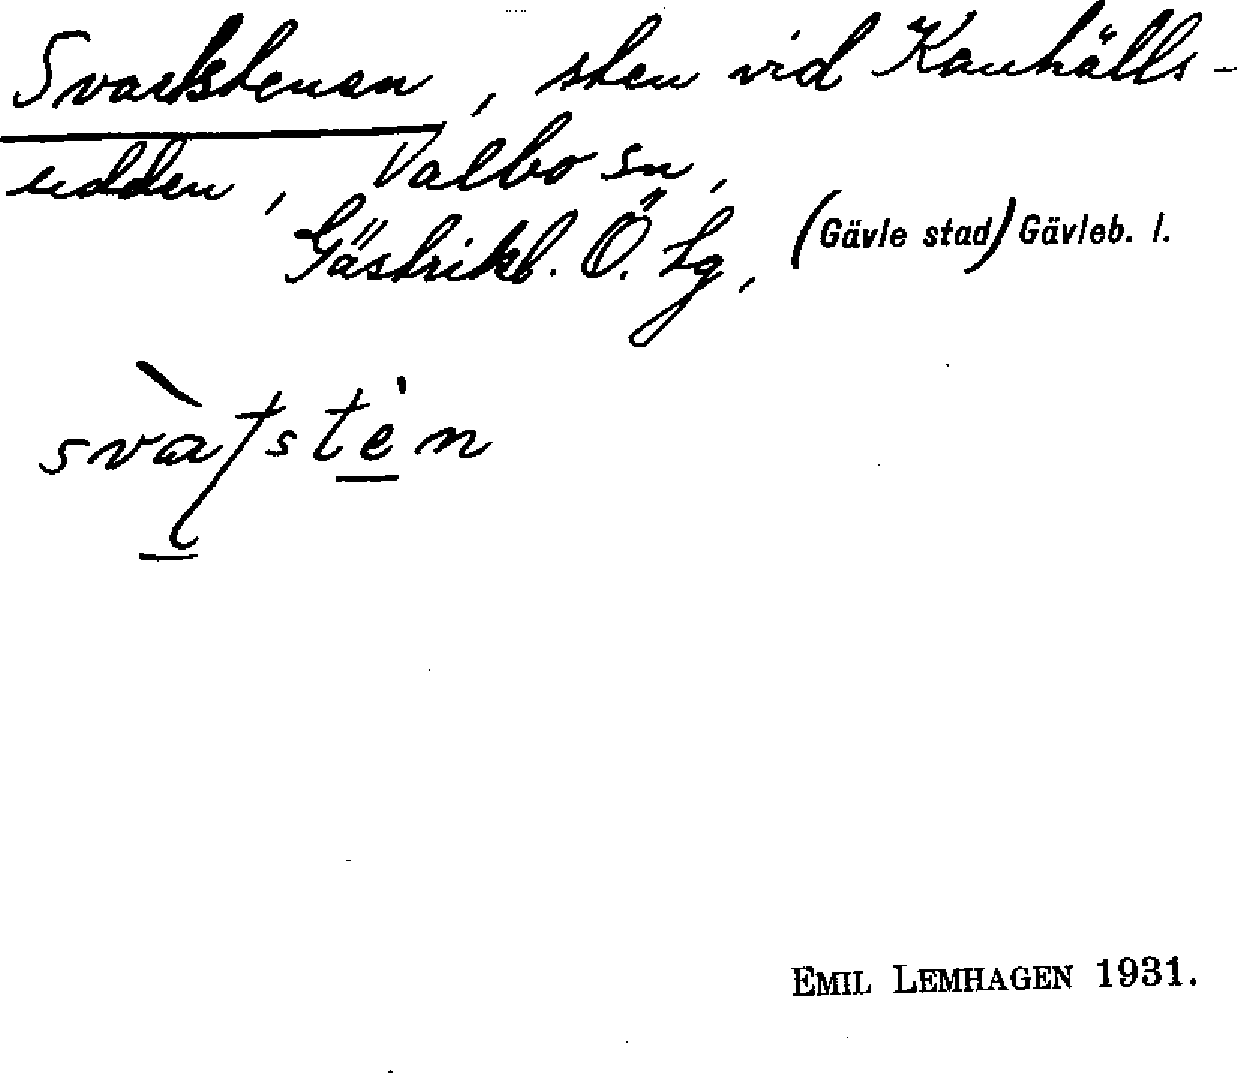 Svartstenen, sten vid Kauhälls-
udden, Valbo sn,
Gästrikl. Ö. Lg, (Gävle stad) Gävleb. l.
svàʈstèn
EMIL LEMHAGEN 1931.